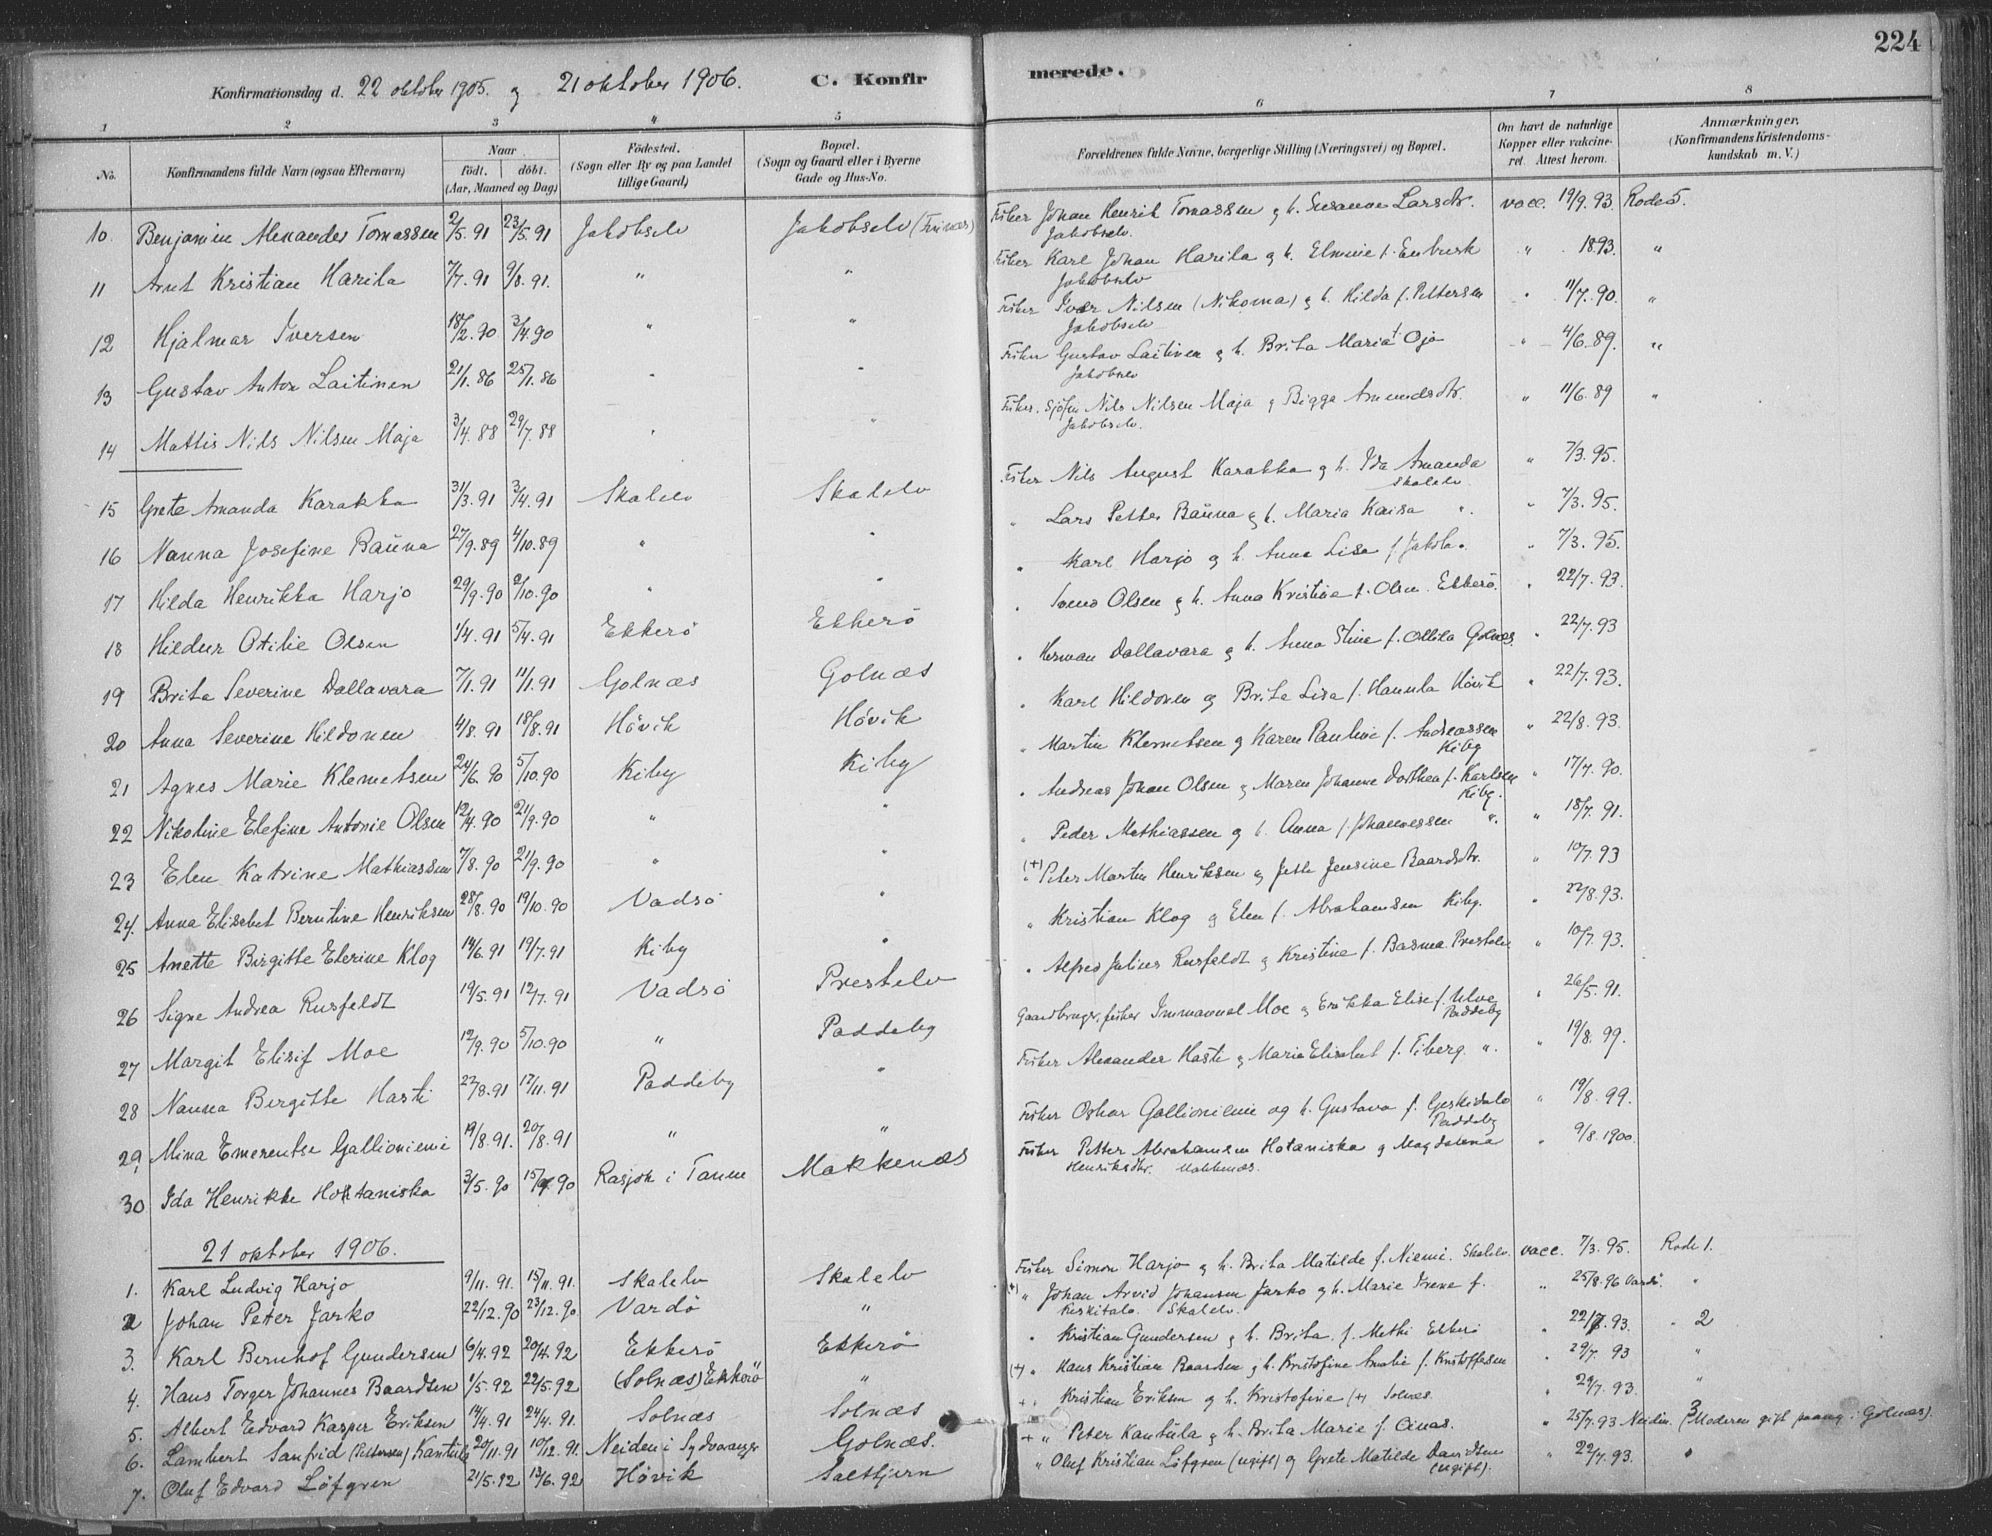 224
Konfirmationsdag d. 22 oktober 1905. og 21 oktober 1906. C. Konfirmerede.
1 2 3 4 5 6 7 8
No. Konfirmandens fulde Navn (ogsaa Efternavn) Naar født. døbt. (Aar, Maaned og Dag) Fødested. (Sogn eller By og paa Landet tillige Gaard) Bopæl. (Sogn og Gaard eller i Byerne Gade og Hus-No. Forældrenes fulde Navne, borgerlige Stilling (Næringsvei) og Bopæl. Om havt de naturlige Kopper eller vakcineret. Attest herom. Anmærkninger. (Konfirmandens Kristendomskundskab m. V.)
10. Benjamin Alexander Tomassen 2/5. 91 23/5. 91 Jakobselv Jakobselv Fisker Johan Henrik Tomassen og h. Susanna Larsdtr. Jakobselv. vacc. 19/9. 93. Rode 5.
11 Arnt Kristian Harila 7/7. 91 9/8. 91. " " Fisker Karl Johan Harila og h. Elmine f. Enbusk Jakobselv " 1893. "
12 Hjalmar Iversen 18/2. 90 3/4. 90 " " Fisker Iver Nilsen (Nikoma) og h. Hilda f. Pettersen Jakobselv " 11/7. 90. "
13 Gustav Anton Laitinen 21/1. 86 25/1. 86 " " Fisker Gustav Laitinen og h. Brita Maria f. Oja Jakobselv " 4/6. 89. "
14 Mattis Nils Nilsen Maja 3/4. 88 29/7. 88 " " Fisker. Sjøfin Nils Nilsen Maja og Bigga Amundsdtr. Jakobselv. " 11/6. 89 "
15 Grete Amanda Karakka 31/3. 91 3/4. 91 Skalelv Skalelv Fisker Nils August Karakka og h. Ida Amanda Skalelv " 7/3. 95.
16 Nanna Josefine Bauna 27/9. 89 4/10. 89 " " " Lars Petter Bauna og h. Maria Kaisa " " 7/3. 95.
17 Hilda Henrikka Harjo 29/9. 90 2/10. 90 " " " Karl Harjo og h. Anna Lisa f. Jakola " 7/3. 95.
18 Hildur Otilie Olsen 1/4. 91 5/4. 91 Ekkerö Ekkerö " Svend Olsen og h. Anna Kristine f. Olsen Ekkerö. " 22/7. 93.
19 Brita Severine Dallavara 7/1. 91 11/1. 91 Golnæs Golnæs " Herman Dallavara og h. Anna Stine f. Ollila Golnæs. " 22/7. 93
20 Anna Severine Hildonen 4/8. 91 18/8. 91 Høvik Høvik " Karl Hildonen og Brita Lisa f. Hannula Høvik " 22/7. 93.
21 Agnes Marie Klemetsen 24/6. 90 5/10. 90 Kiby Kiby " Martin Klemetsen og Karen Pauline f. Andreassen Kiby " 22/8. 93.
22 Nikoline Elefine Antonie Olsen 12/4. 90 21/9. 90 " " " Andreas Johan Olsen og Maren Johanne Dorthea f. Karlsen Kiby. " 17/7. 90.
23 Elen Katrine Mathiassen 7/8. 90 21/9. 90 " " " Peder Mathiassen og h. Anna f. Johannessen " " 18/7. 91.
24. Anna Elisabet Berntine Henriksen 28/8. 90 19/10. 90 Vadsö " (+) Peter Martin Henriksen og Jette Jensine Baardsdtr. " 10/7. 93
25 Anette Birgitte Elerine Klog 14/6. 91 19/7. 91 Kiby " " Kristian Klog og Elen f. Abrahamsen Kiby. " 22/8. 93.
26 Signe Andrea Rusfeldt 19/5. 91 12/7. 91 Vadsö Prestelv " Alfred Julius Rusfeldt og Kristine f. Basma Prestelv " 10/7. 93.
27 Margit Elisif Moe 12/9. 90 5/10. 90 " Paddeby Gaardbruger, fisker Immanuel Moe og Erikka Elise f. Ulve Paddeby " 26/5. 91.
28 Nanna Birgitte Hasti 22/8. 91 12/11. 91 Paddeby " Fisker Alexander Hasti og Maria Elisabet f. Tiberg. " " 19/8. 99.
29, Mina Emerentse Gallioniemi 19/8. 91. 20/8. 91 " " Fisker Oskar Gallioniemi og h. Gustava f. Paddeby " 19/8. 99.
30 Ida Henrikke Hotaniska 3/5. 90 15/9. 90 Rasjok i Tanen Makkenæs Fisker Petter Abrahamsen Hotaniska og Magdalena Henriksdtr. Makkenæs. " 9/8. 1900.
21 oktober 1906.
1. Karl Ludvig Harjo 9/11. 91. 15/11. 91. Skalelv Skalelv Fisker Simon Harjo og h. Brita Matilde f. Niemi. Skalelv. vacc. 7/3. 95. Rode 1.
2 Johan Peter Jarko 22/12. 90 23/12. 90 Vardö " (+) " Johan Arvid Johansen Jarko og h. Marie Irene f. Keskitalo. Skalelv. " 25/8. 96 Vardö. "
3. Karl Bernhof Gundersen 6/4. 92 20/4. 92 Ekkerö Ekkerö " Kristian Gundersen og h. Brita f. Methi Ekkerö " 22/7. 93. " 2
4. Hans Torger Johannes Baardsen 1/5. 92 22/5. 92 (Solnæs) Ekkerö " (+) " Hans Kristian Baardsen og h. Kristofine Amalie f. Kristoffersen " 29/7. 93 "
5. Albert Edvard Kasper Eriksen 14/4. 91 24/4. 91. Solnæs Solnæs + " Kristian Eriksen og h. Kristofine (+) Solnæs. " 29/7. 93. "
6. Lambert Sanfrid (Pettersen) Kantula 20/11. 91 10/12. 91. Neiden i Sydvaranger Golnæs. + " Peter Kantula og h. Brita Marie f. Cinas. " 25/7. 93 Neiden. 3 (Moderen gift paany i Golnæs).
7. Oluf Edvard Löfgren 21/5. 92 13/6. 92 Høvik Saltbjern " Oluf Kristian Löfgren (ugift) og Grete Matilde Davidsen (ugift). " 22/7. 93. "